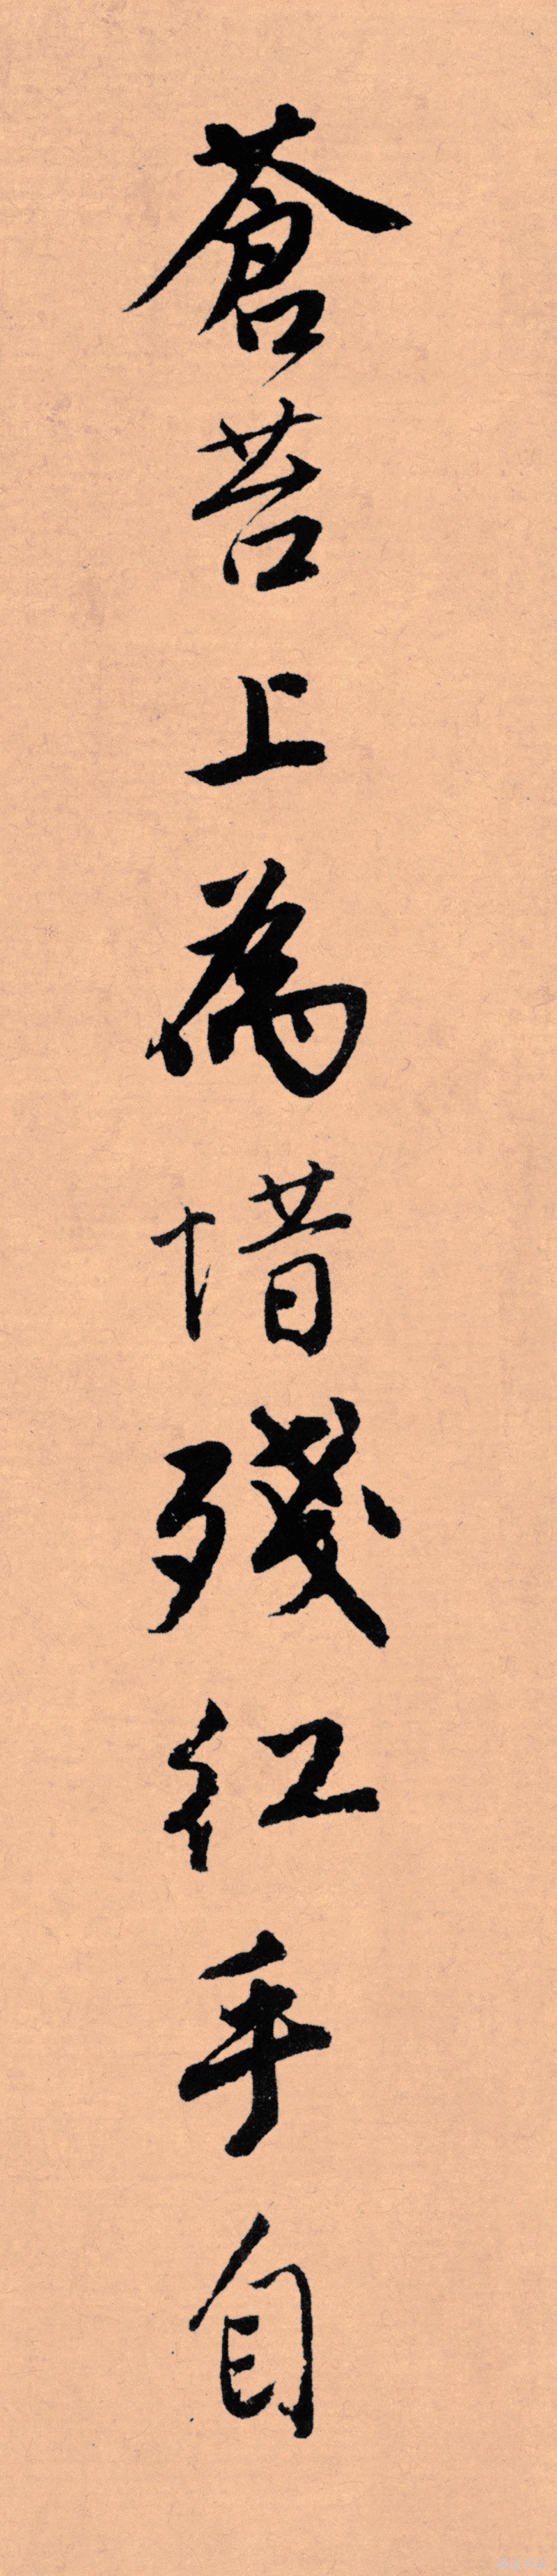 蒼苔上為惜殘紅手自